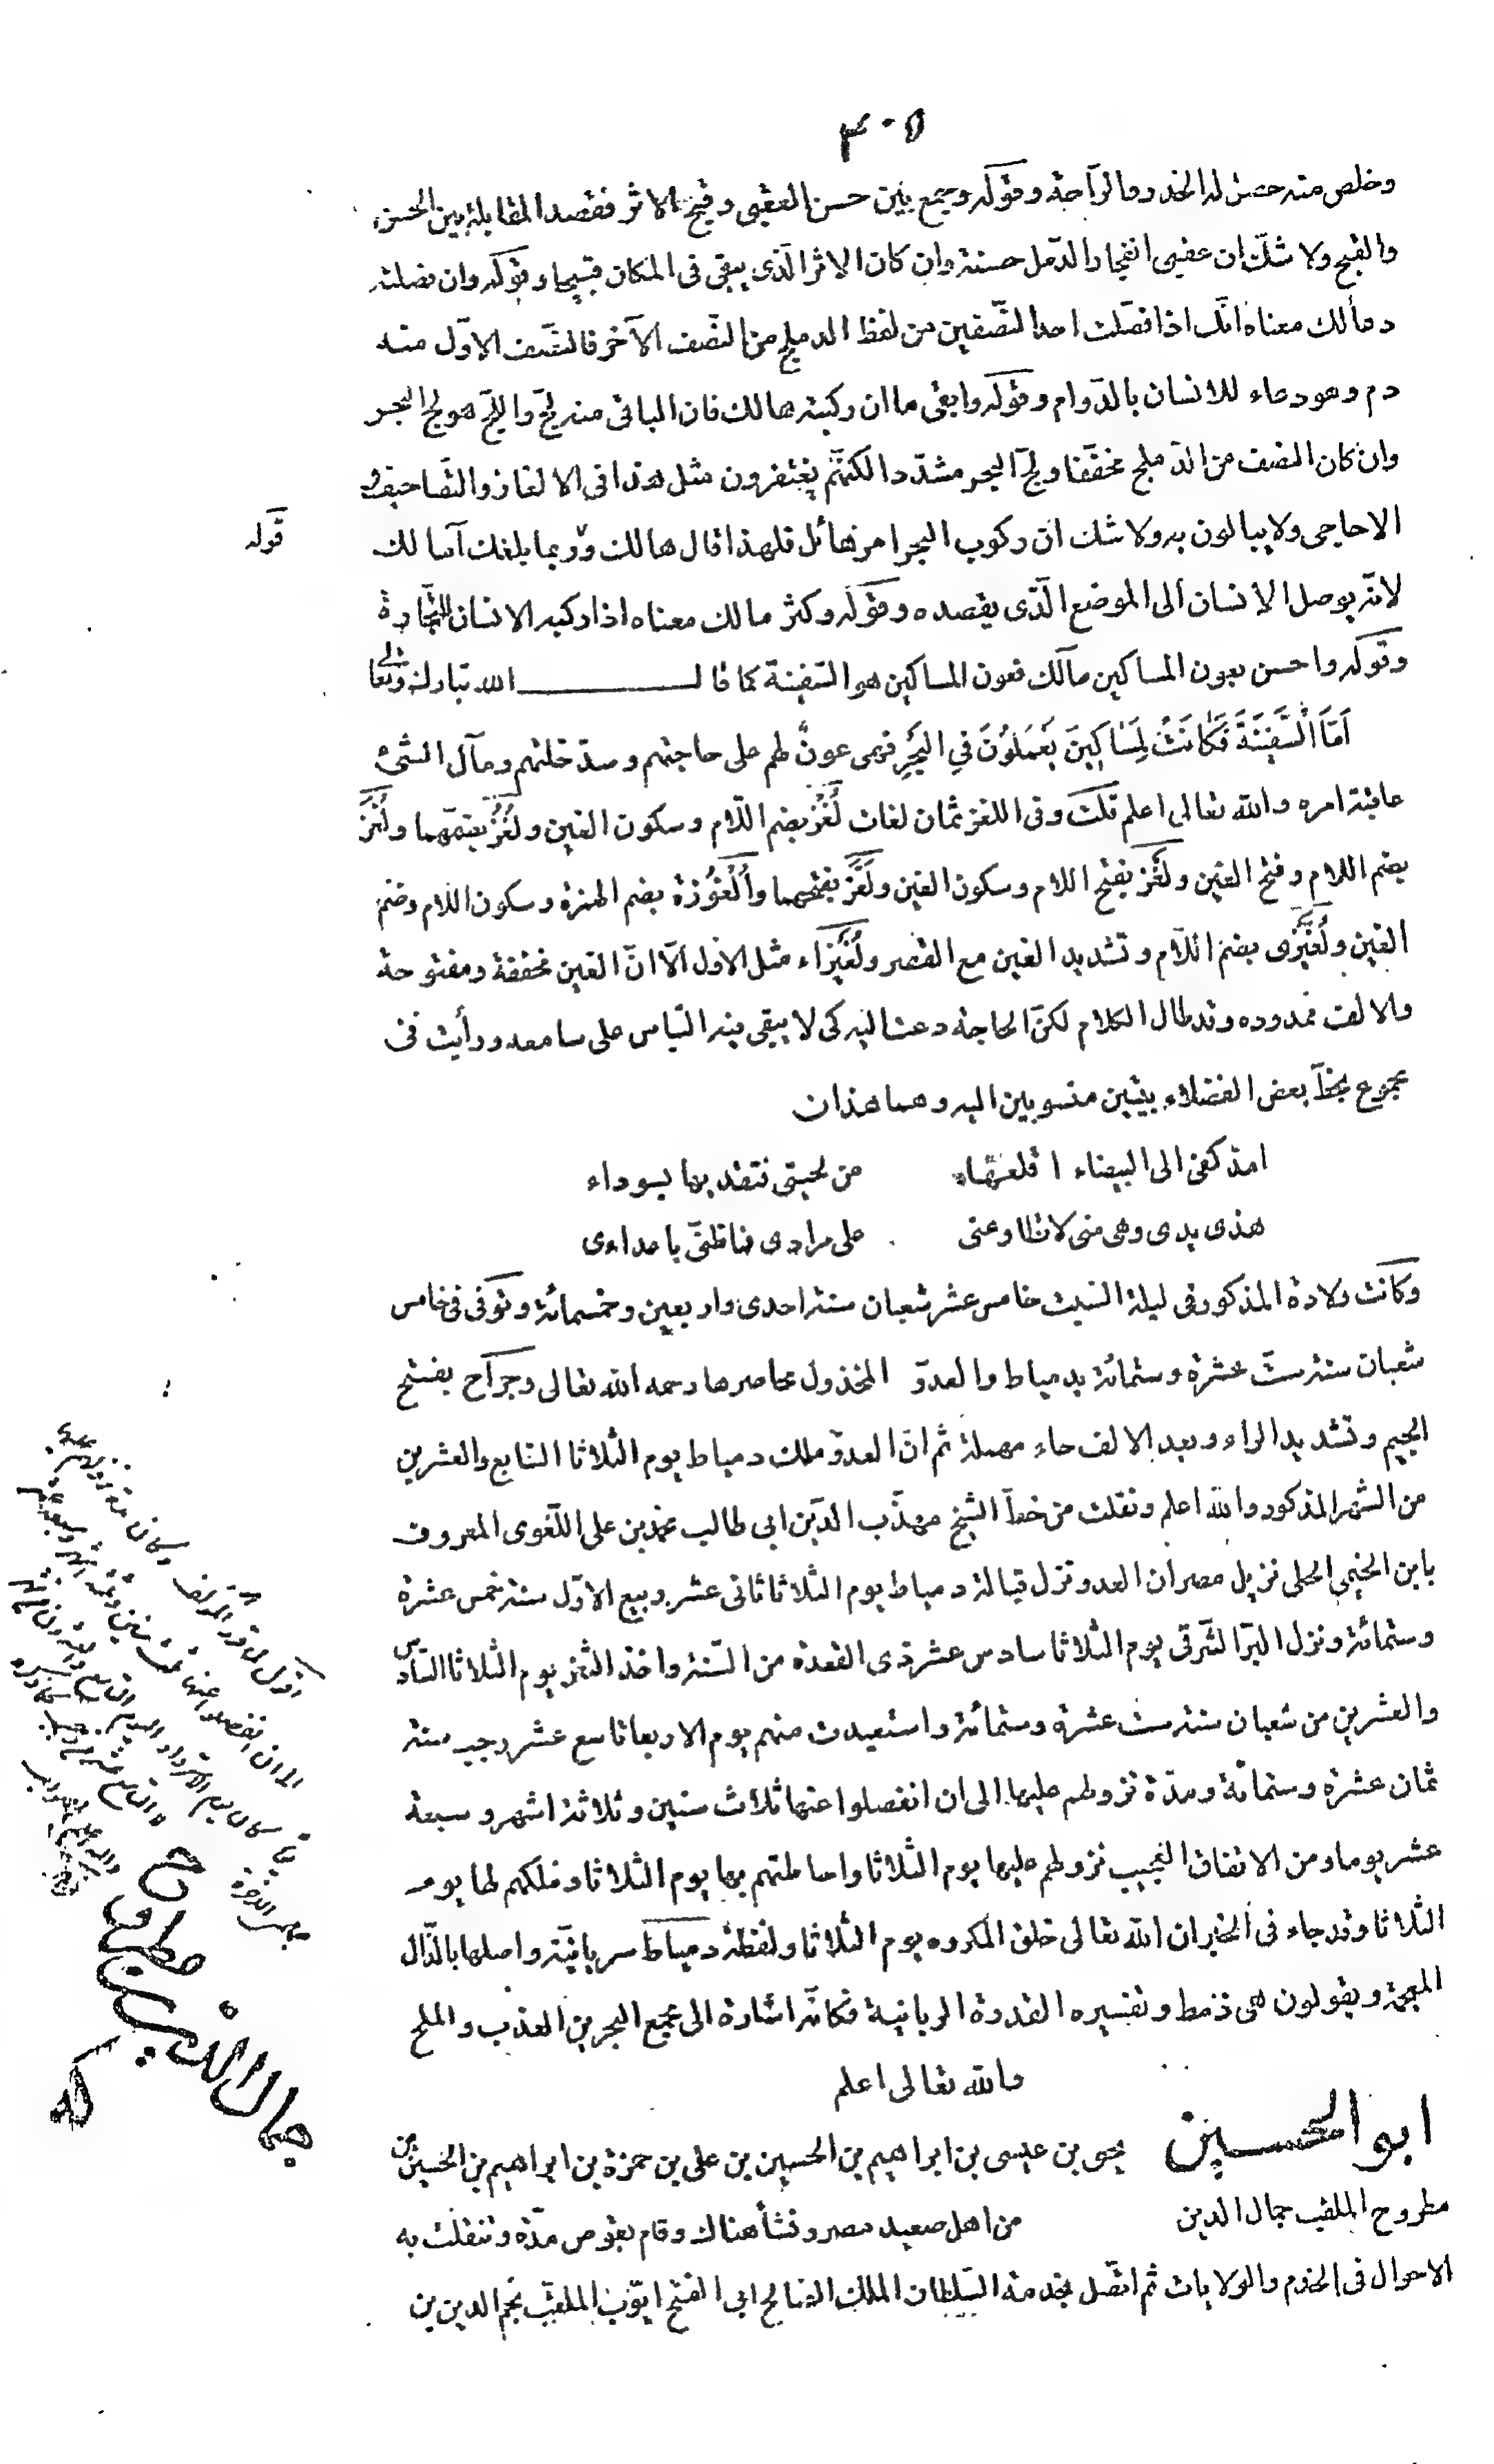 ٤٠٥
وخلص منه حصل له الخير والراحة وقوله ويجمع بين حسن العقبى وقبح الاثر فقصد المقابلة بين الحسن
والقبح ولا شك ان عقبى انفجار الدمل حسنة وان كان الاثر الذى يبقى فى المكان قبيحا وقوله وان فصلته
دمالك معناه انك اذا فصلت احد النصفين من لفظ الدملج من النصف الآخر فالنصف الاول منه
دم وهو دعاء للانسان بالدوام وقوله وابقى ما ان ركبته هالك فان الباقى منه لج واللج هو لج البحر
وان كان النصف من الدملج مخففا ولج البحر مشددا لكنهم يغتفرون مثل هذا فى الالغاز والتصاحيف و
الاحاجى ولا يبالون به ولا شك ان ركوب البحر امر هائل فلهذا قال هالك وربما بلغك آمالك
قوله
لانه يوصل الانسان الى الموضع الذى يقصده وقوله وكثر مالك معناه اذا ركبه الانسان للتجارة
وقوله واحسن بعون المساكين مآلك فعون المساكين هو السفينة كما قال الله تبارك وتعالى
اَمَّا السَّفِينَةُ فَكَانَتْ لِمَسَاكِينَ يَعْمَلُونَ فِى الْبَحْرِ فهى عون لهم على حاجتهم وسد خلتهم ومآل الشئ
عاقبة امره والله تعالى اعلم قلت وفى اللغز ثمان لغات لُغْز بضم اللام وسكون الغين ولُغُز بضمهما ولُغَز
بضم اللام وفتح الغين ولَغْز بفتح اللام وسكون الغين ولَغَز بفتحهما وأُلْغُوزة بضم الهمزة وسكون اللام وضم
الغين ولُغَّيْزى بضم اللام وتشديد الغين مع القصر ولُغَيْزاء مثل الاول الا ان الغين مخففة ومفتوحة
والالف ممدوده وقد طال الكلام لكن الحاجة دعت اليه كى لا يبقى فيه التباس على سامعه ورأيت فى
مجموع بخط بعض الفضلاء بيتين منسوبين اليه وهما هذان
امد كفى الى البيضاء اقلعها من لحيتى فتفديها بسوداء
هذى يدى وهى منى لا تطاوعنى على مرادى فما ظنى باعداءى
وكانت ولادة المذكور فى ليلة السبت خامس عشر شعبان سنة احدى واربعين وخمسمائة وتوفى فى خامس
شعبان سنة ست عشرة وستمائة بدمياط والعدو المخذول محاصرها رحمه الله تعالى وجراح بفتح
الجيم وتشديد الراء وبعد الالف حاء مهملة ثم ان العدو ملك دمياط يوم الثلاثا السابع والعشرين
من الشهر المذكور والله اعلم ونقلت من خط الشيخ مهذب الدين ابى طالب محمد بن على اللغوى المعروف
بابن الخيمى الحلى نزيل مصر ان العدو نزل قبالة دمياط يوم الثلاثا ثانى عشر ربيع الاول سنة خمس عشرة
وستمائة ونزل البر الشرقى يوم الثلاثا سادس عشر ذى القعدة من السنة واخذ الثغر يوم الثلاثا السادس
والعشرين من شعبان سنة ست عشرة وستمائة واستعيدت منهم يوم الاربعا تاسع عشر رجب سنة
ثمان عشرة وستمائة ومدة نزولهم عليها الى ان انفصلوا عنها ثلاث سنين وثلاثة اشهر وسبعة
عشر يوما ومن الاتفاق العجيب نزولهم عليها يوم الثلاثا واحاطتهم بها يوم الثلاثا وملكهم لها يوم
الثلاثا وقد جاء فى الخبر ان الله تعالى خلق المكروه يوم الثلاثا ولفظة دمياط سريانية واصلها بالذال
المعجمة ويقولون هى ذمط وتفسيره القدرة الربانية فكانه اشارة الى مجمع البحرين العذب والملح
والله تعالى اعلم
ابو الحسين يحيى بن عيسى بن ابراهيم بن الحسين بن على بن حمزة بن ابراهيم بن الحسين بن
مطروح الملقب جمال الدين من اهل صعيد مصر ونشأ هناك وقام بقوص مدة وتنقلت به
الاحوال فى الخدم والولايات ثم اتصل بخدمة السلطان الملك الصالح ابى الفتح ايوب الملقب نجم الدين بن
جمال الدين بن مطروح